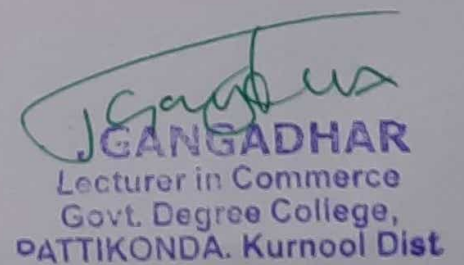 J GANGADHAR
Lecturer in Commerce
Govt. Degree College,
PATTIKONDA. Kurnool Dist